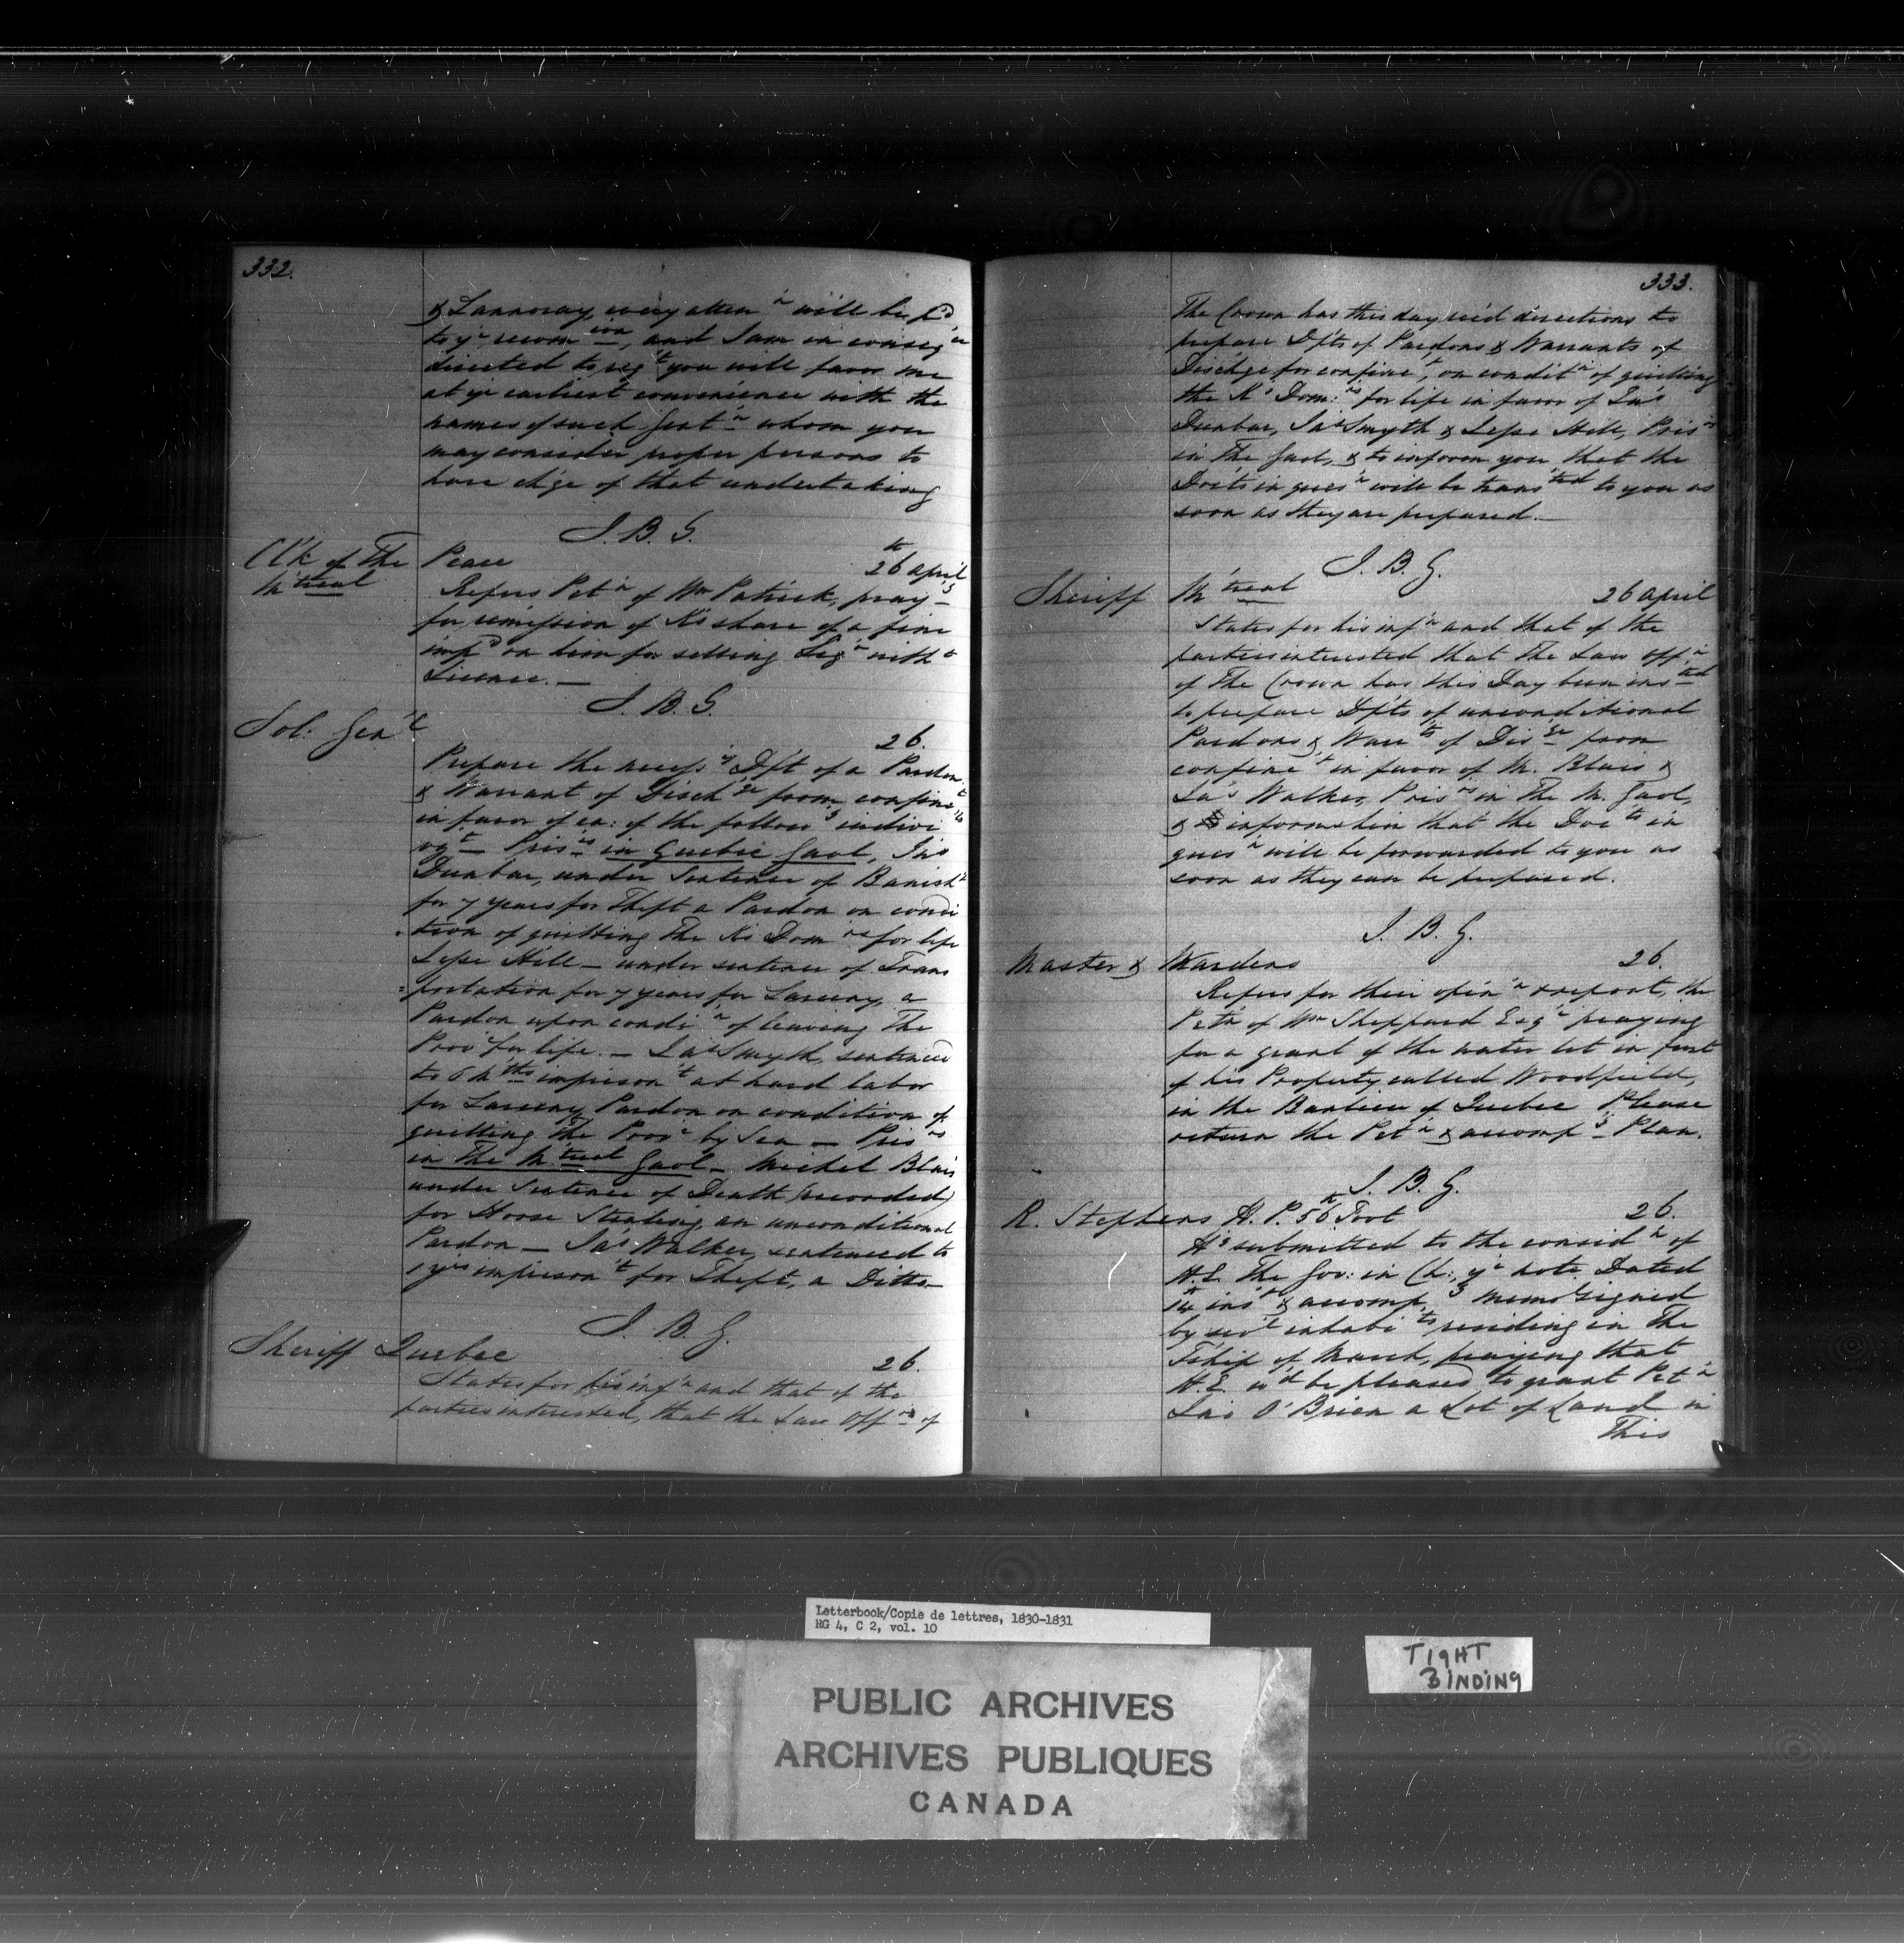 332.
& Lannoray, every atten.n will be p.d
to y.r recom.ion, and I am in conseq.ce
directed to req.t you will favor me
at y.r earliest convenience with the
names of such Gent.n whom you
may consider proper persons to
have ch'ge of that undertaking
J. B. G.
Cl'k of The Peace 26th april
M'treal
Refers Pet.n of Wm Patrick, pray.g
for remission of K's share of a fine
imp.d on him for selling Liq.r with.t
Licence. —
J. B. G.
Sol: Gen'l
26.
Prepare the necess.y D'ft of a Pardon
& Warrant of Disch.ge from confine.t
in favor of ea: of the follow.g indivi.ls
Pris.rs in Quebec Gaol, Jas
Dunbar, under Sentence of Banish.t
for 7 years for Theft a Pardon on condi
tion of quitting The K's Dom.ns for life
Jesse Hill — under sentence of Trans
portation for 7 years for Larceny, a
Pardon upon condi.n of leaving The
Prov.e for life. — Jas Smyth, sentenced
to 6 M.ths imprison.t at hard labor
for Larceny, Pardon on condition of
quitting The Prov.e by Sea — Pris.rs
in The M.treal Gaol — Michel Blais
under Sentence of Death (recorded)
for Horse Stealing, an unconditional
Pardon — Jas Walker, sentenced to
1 yrs imprison.t for Theft, a Ditto —
J. B. G.
Sheriff Quebec
26.
States for his inf.n and that of the
parties interested, that the Law Off.rs of
333.
The Crown has this day rec'd directions to
prepare D'fts of Pardons & Warrants of
Disch'ge for confine.t, on condit.n of quitting
the K's Dom:ns for life in favor of Jas
Dunbar, Jas Smyth & Jesse Hill, Pris.rs
in The Gaol, & to inform you that the
Doc'ts in ques.n will be trans.ted to you as
soon as they are prepared. —
J. B. G.
Sheriff M'treal 26 april
States for his inf.n and that of the
parties interested that The Law Off.r
of The Crown has this Day been ins.ted
to prepare D'fts of unconditional
Pardons & Warr.ts of Dis.ge from
confine.t in favor of M. Blais &
Jas Walker, Pris.rs in The M. Gaol,
& informs him that the Doc.ts in
ques.n will be forwarded to you as
soon as they can be prepared.
J. B. G.
Master & Wardens 26.
Refers for their opin.n & report, the
Petn of Wm Sheppard Esq.r praying
for a grant of the water lot in front
of his Property called Woodfield,
in the Banlieu of Quebec Please
return the Pet.n & accomp.g Plan.
J. B. G.
R. Stephens H. P. 56th Foot 26.
H's submitted to the consid.n of
H.E. The Gov: in Ch:, y.r note Dated
14th ins.t & accomp.g memo signed
by sev.l inhabi.ts residing in The
T'ship of March, praying that
H.E. w'd be pleased to grant Pet.n
Jas O'Brien a Lot of Land in
This
Letterbook/Copie de lettres, 1830-1831
RG 4, C 2, vol. 10
PUBLIC ARCHIVES
ARCHIVES PUBLIQUES
CANADA
TIGHT
BINDING